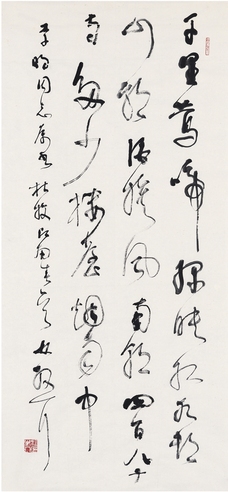 千里莺啼绿映红水村
山郭酒旗风南朝四百八十
寺多少楼台烟雨中
同志属书杜牧江南春 林散耳